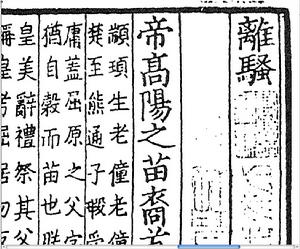 離騷
帝高陽之苗裔
顓頊生老僮老僮
楚至熊通子瑕受
庸蓋屈原之父字
猶自穀而苗也
皇美辭禮祭其父
皇考屈居勿